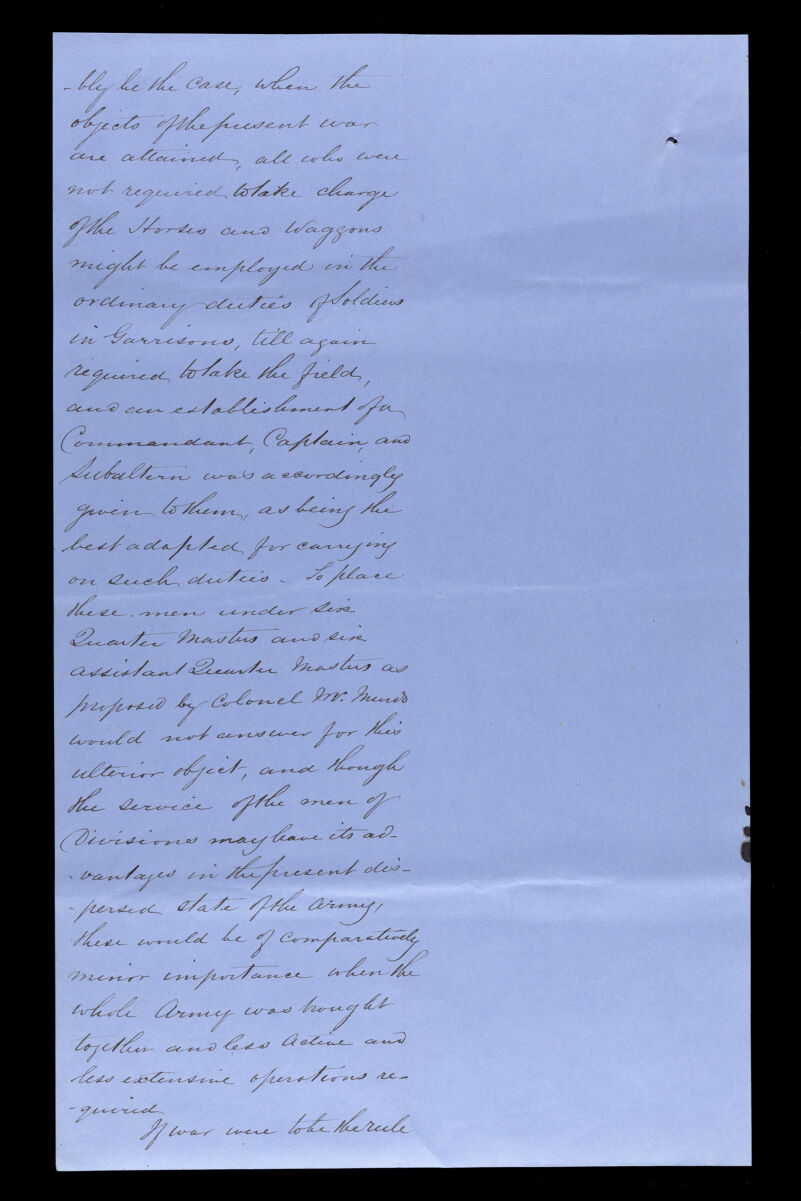 -bly be the case, when the
objects of the present war
are attained, all who were
not required to take charge
of the Horses and Waggons
might be employed in the
ordinary duties of Soldiers
in Garrisons, till again
required to take the field,
and an establishment of a
Commandant, Captain, and
Subaltern was accordingly
given to them, as being the
best adapted for carrying
on such duties - To place
these men under six
Quarter Masters and six
assistant Quarter Masters as
proposed by Colonel Mc. Murdo
would not answer for this
ulterior object, and though
the service of the men of
Divisions may have its ad-
-vantages in the present dis-
-persed state of the Army,
these would be of comparatively
minor importance when the
whole Army was brought
together and less Active and
less extensive operations re-
-quired
If war were to be the rule